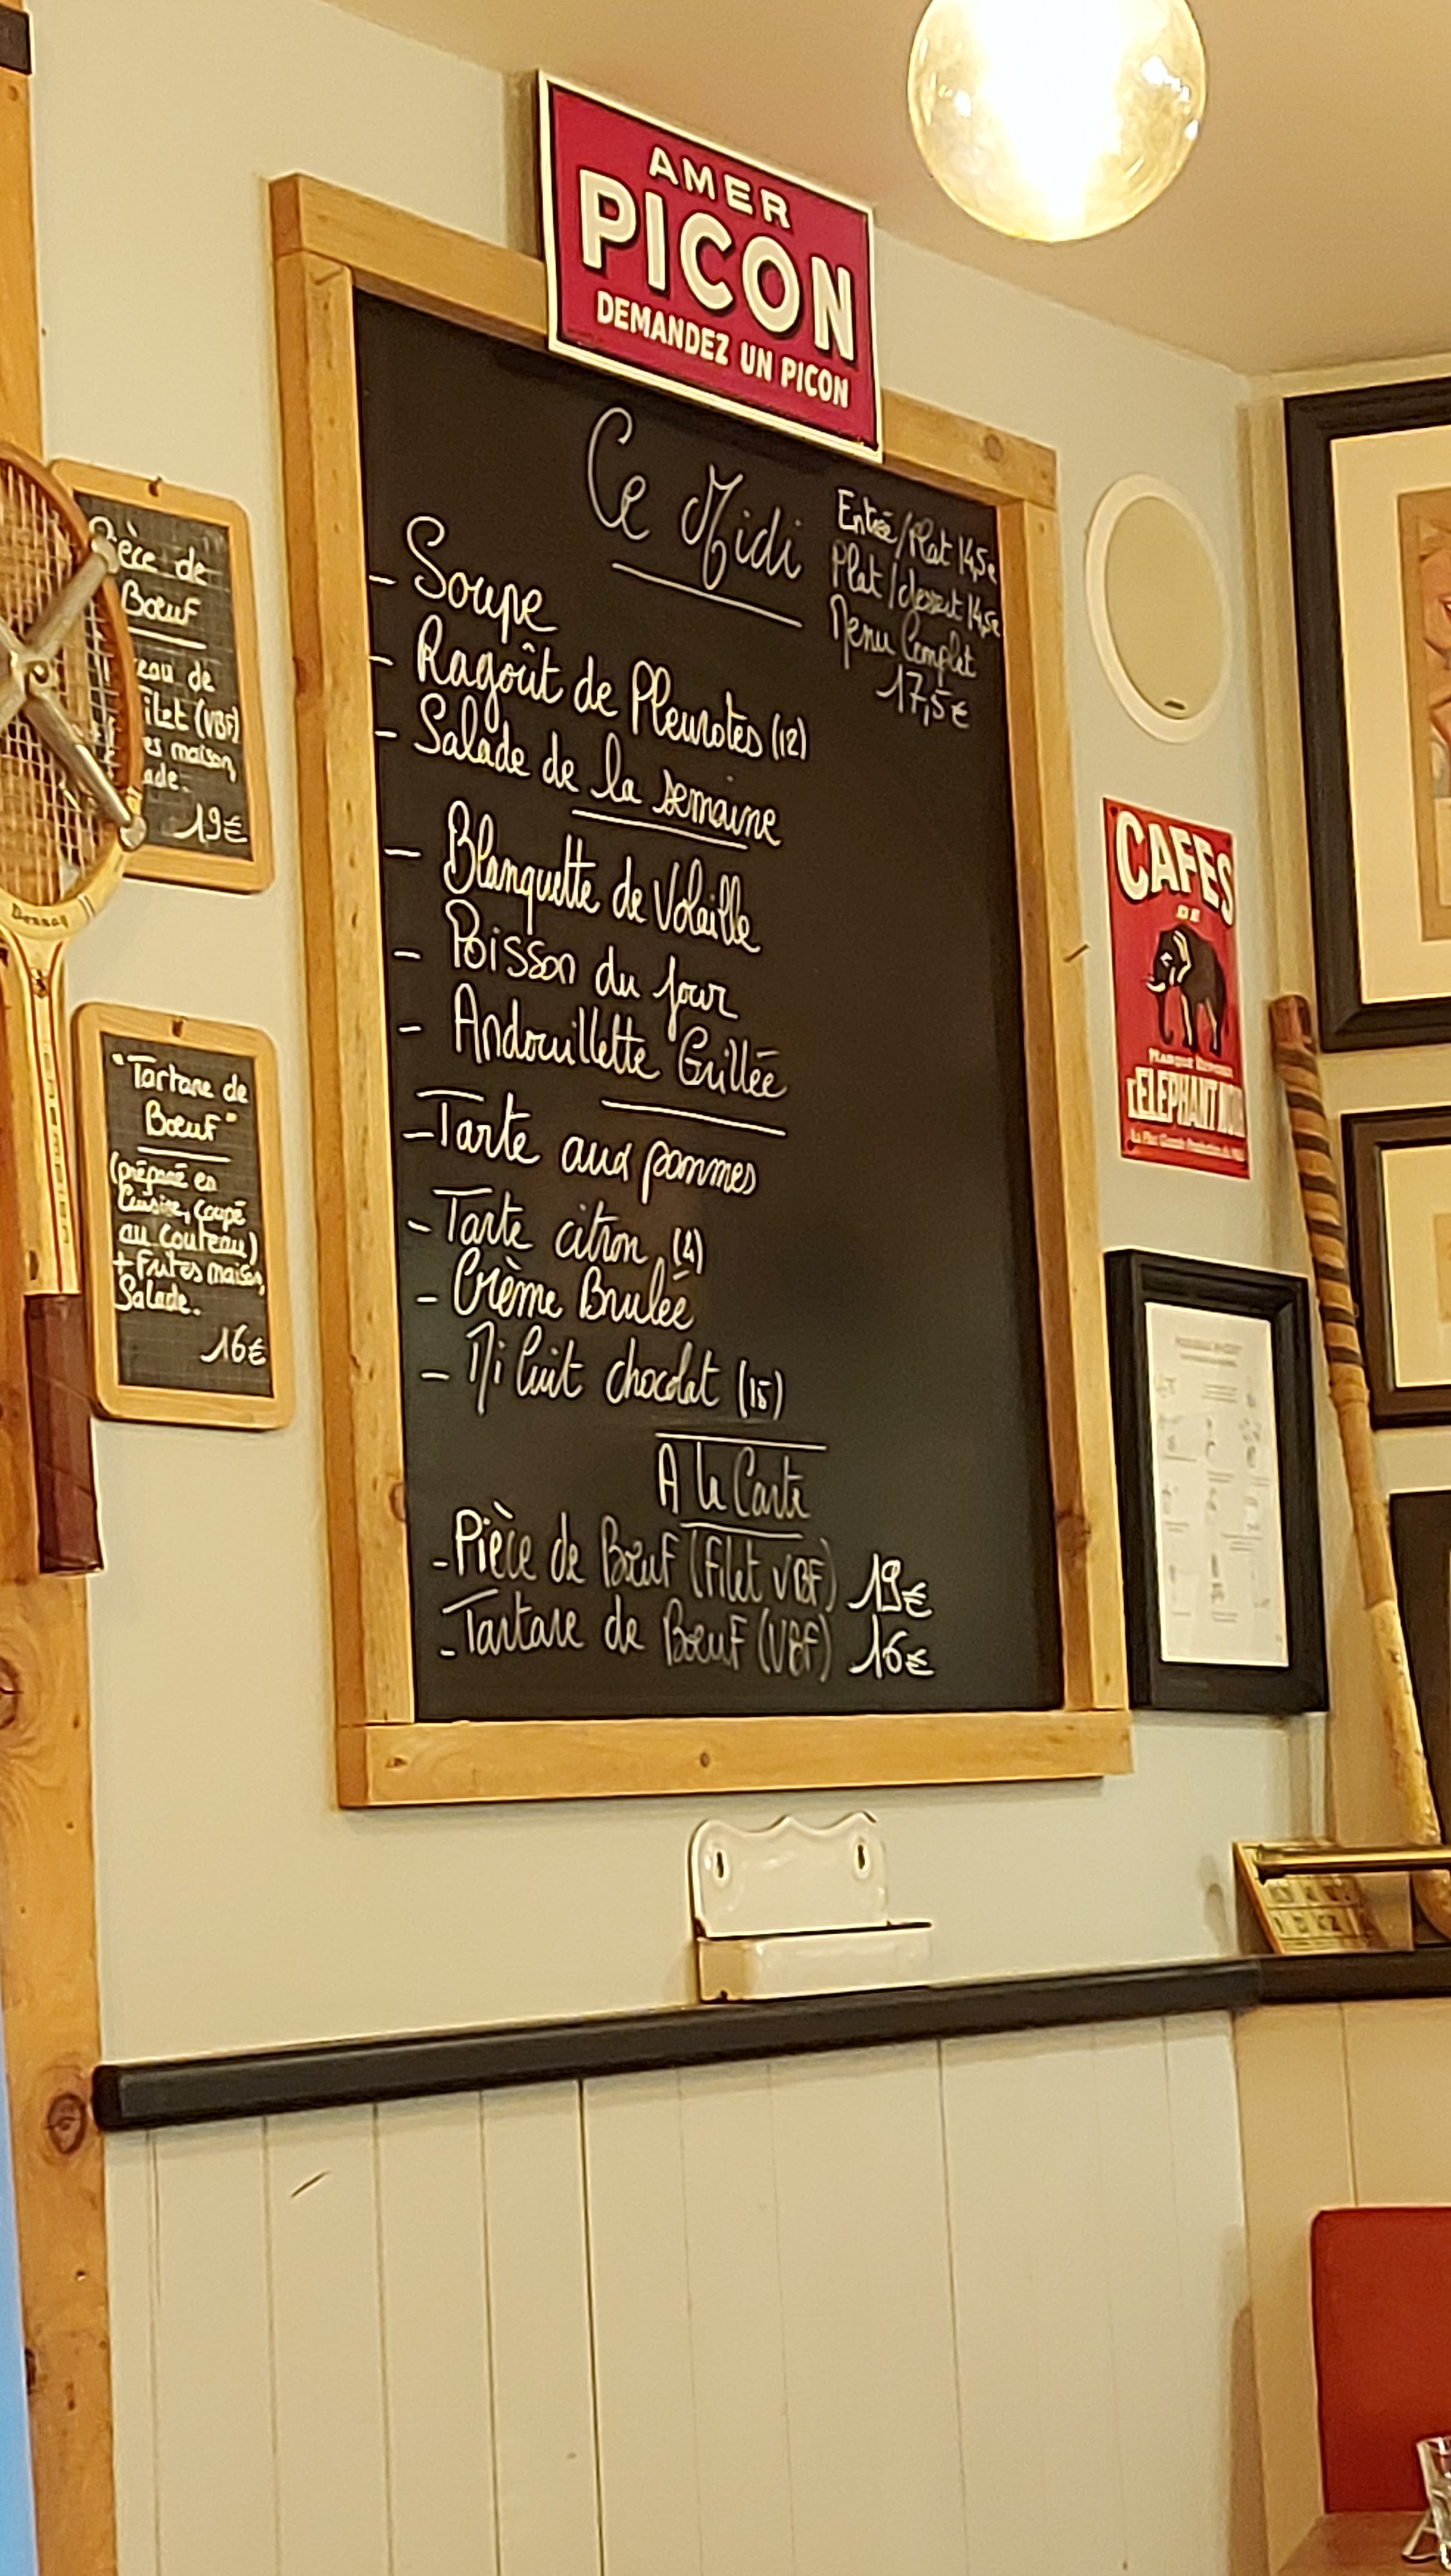 AMER
PICON
DEMANDEZ UN PICON
Ce Midi
Entrée/Plat 14,5€
Plat/dessert 14,5€
Menu Complet
17,5€
- Soupe
- Ragoût de Pleurotes (12)
- Salade de la semaine
- Blanquette de Volaille
- Poisson du jour
- Andouillette Grillée
- Tarte aux pommes
- Tarte citron (4)
- Crème Brulée
- Mi Cuit chocolat (15)
A la Carte
- Pièce de Bœuf (Filet VBF) 19€
- Tartare de Bœuf (VBF) 16€
Pièce de
Bœuf
de
Filet (VBF)
maison,
19€
"Tartare de
Bœuf"
(préparé en
Cuisine, coupé
au couteau)
+ Frites maison,
Salade.
16€
Donnay
CAFES
L'ELEPHANT NOIR